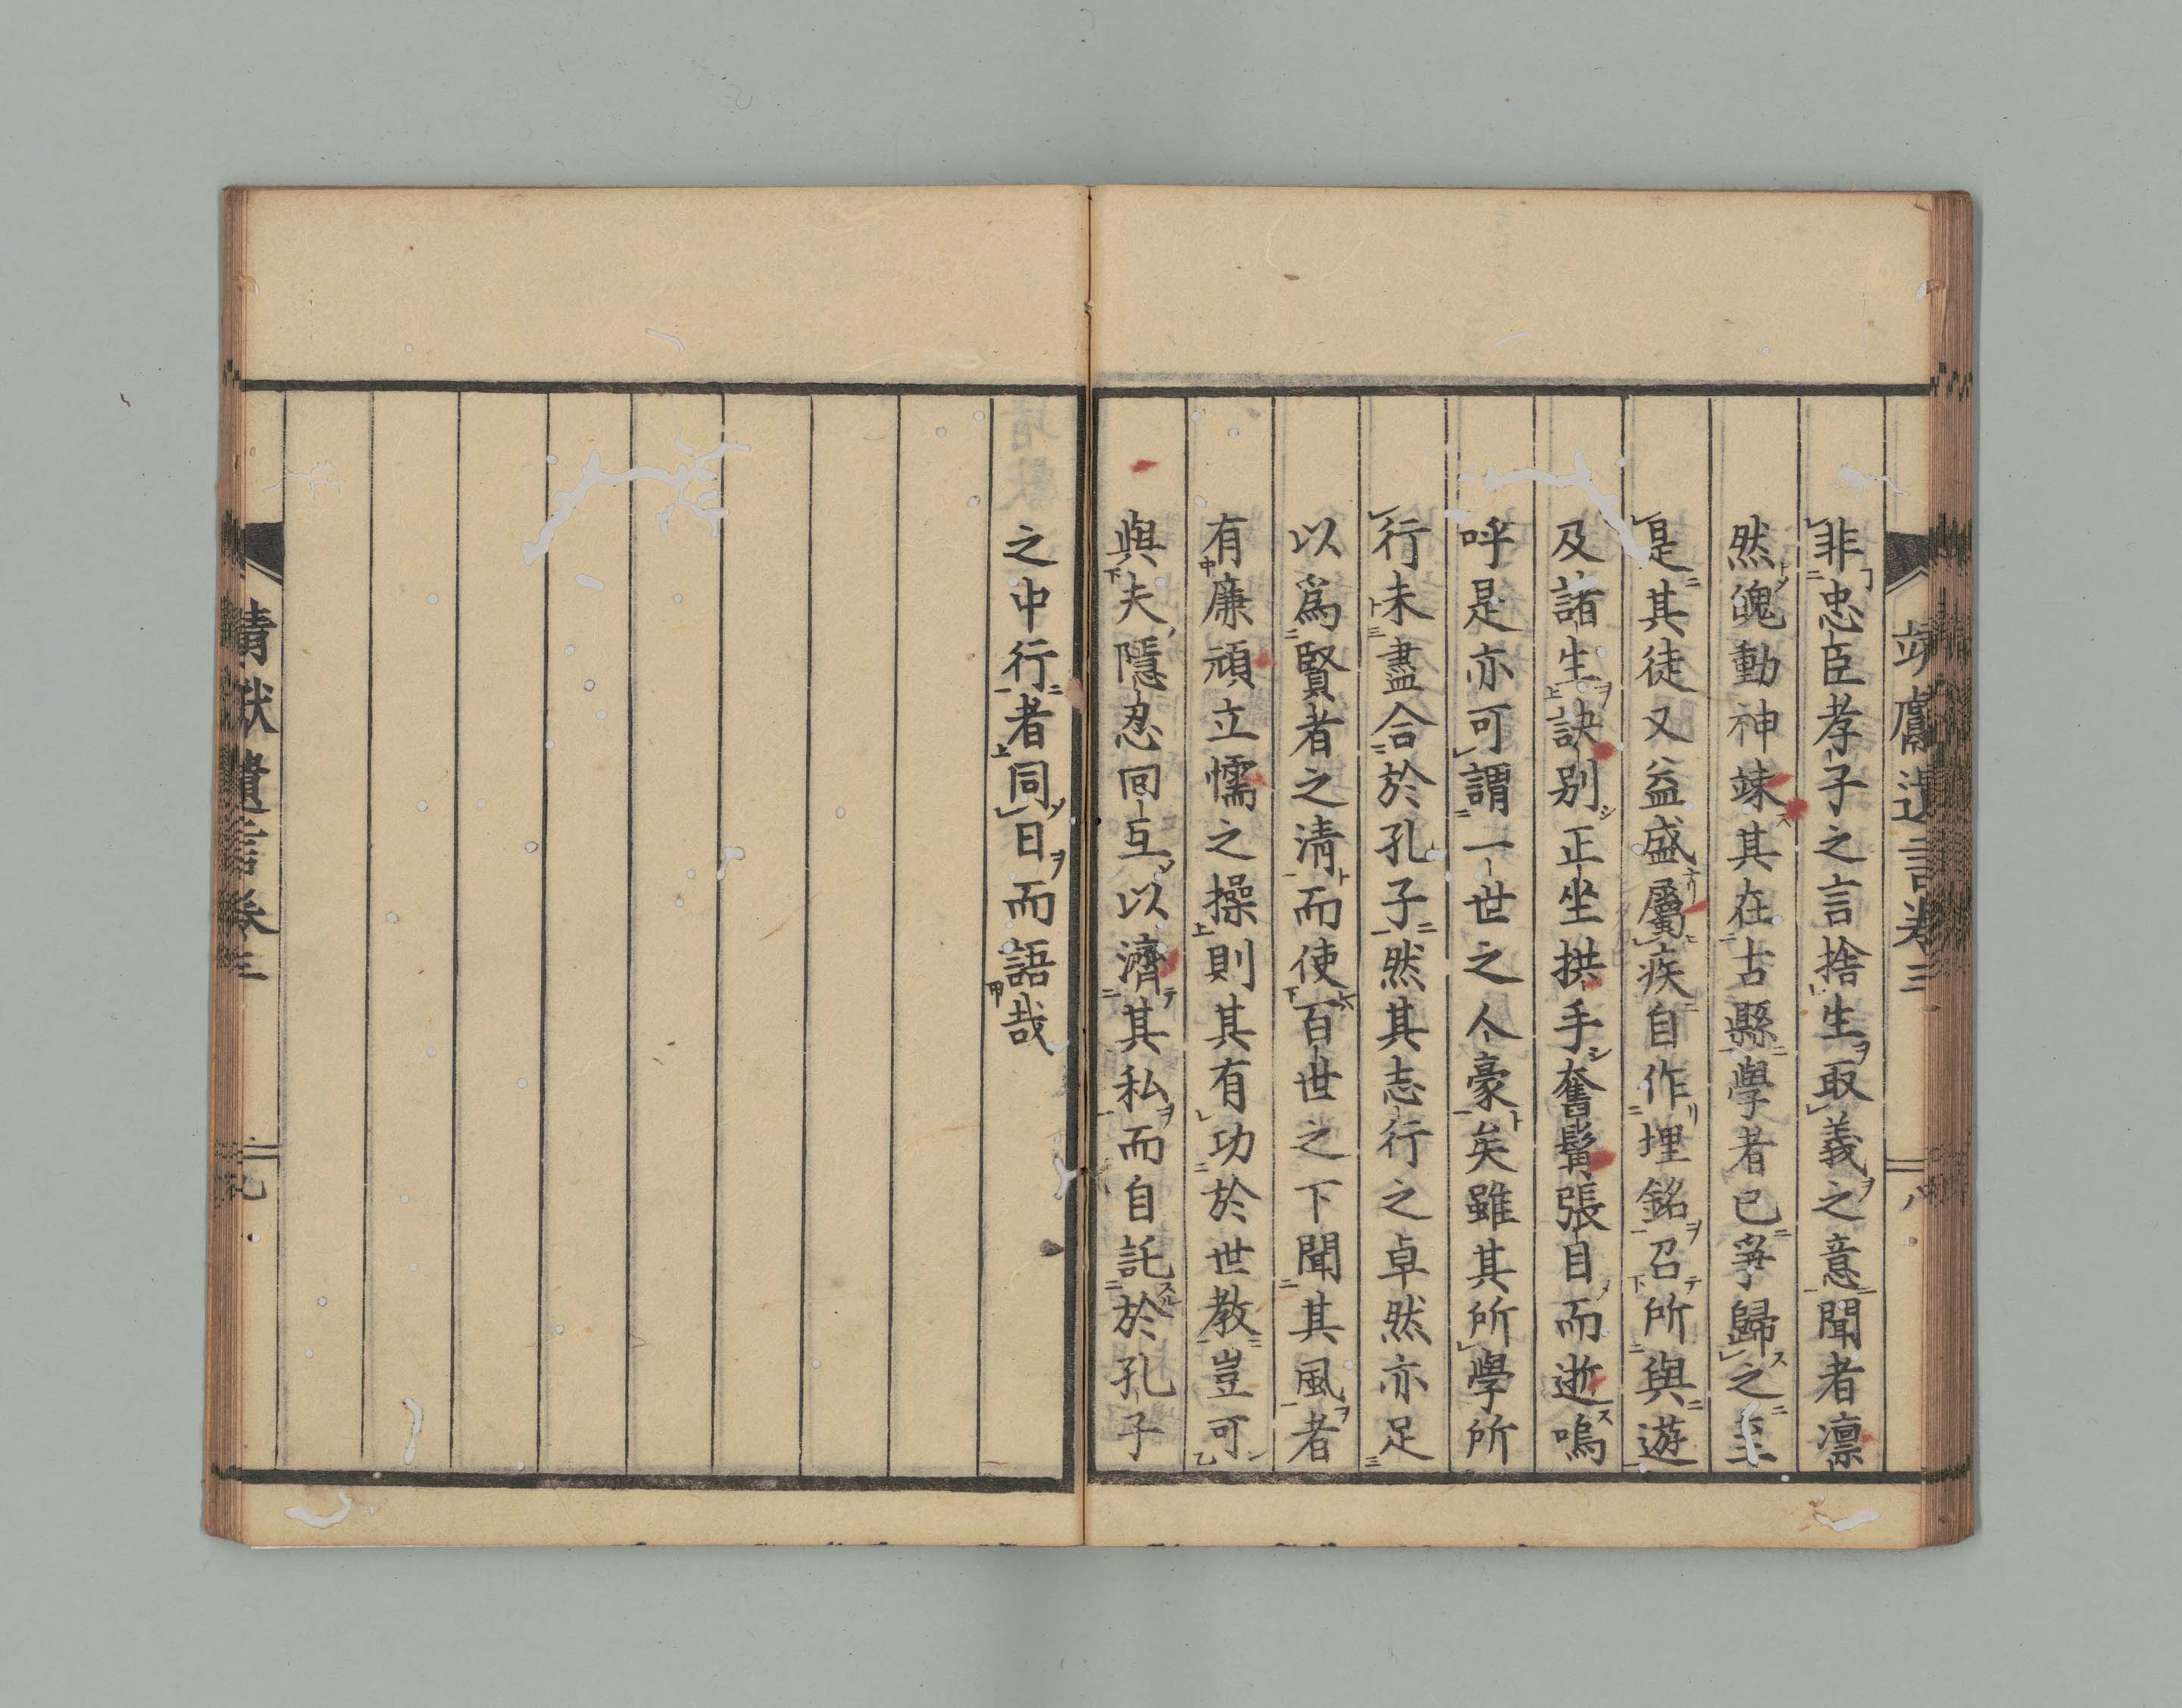 靖献遺言卷三
八
非忠臣孝子之言捨生取義之意聞者凛
然魄動神竦其在古縣學者已爭歸之至
是其徒又益盛屬疾自作埋銘召所與遊
及諸生訣别正坐拱手奮髯張目而逝嗚
呼是亦可謂一世之人豪矣雖其所學所
行未盡合於孔子然其志行之卓然亦足
以爲賢者之淸而使百世之下聞其風者
有廉頑立懦之操則其有功於世教豈可
與夫隱忍回互以濟其私而自託於孔子
之中行者同日而語哉
靖献遺言卷三
九